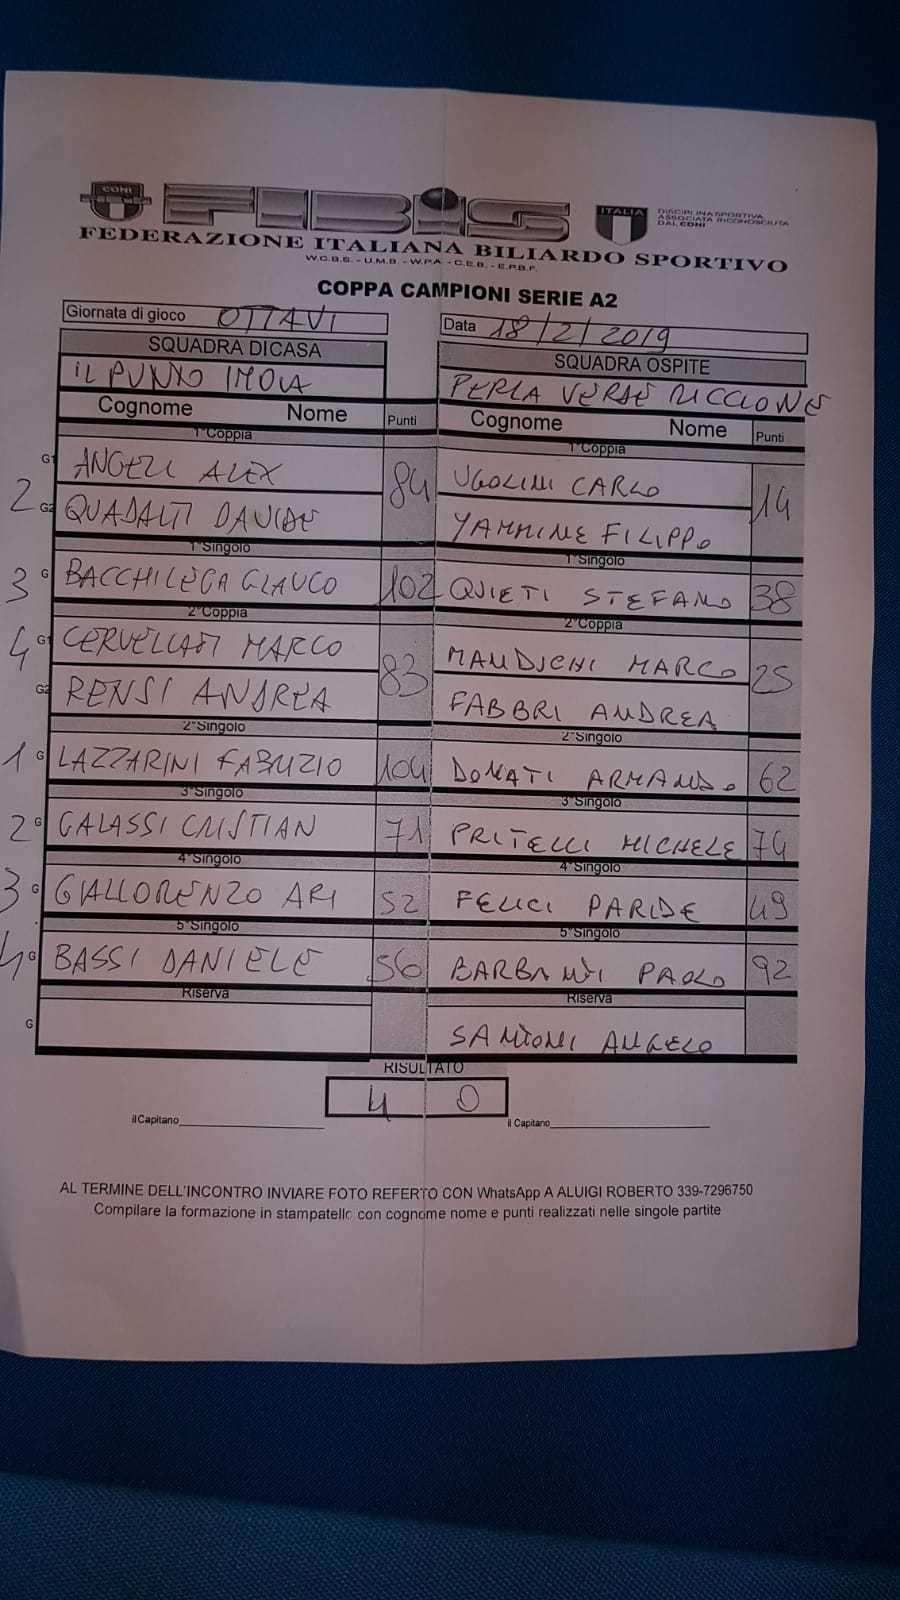 CONI
FIBiS
ITALIA
DISCIPLINA SPORTIVA
ASSOCIATA RICONOSCIUTA
DAL CONI
FEDERAZIONE ITALIANA BILIARDO SPORTIVO
W.C.B.S. - U.M.B. - W.P.A. - C.E.B. - E.P.B.F.
COPPA CAMPIONI SERIE A2
Giornata di gioco OTTAVI
Data 18/2/2019
SQUADRA DI CASA
SQUADRA OSPITE
IL PUNTO IMOLA
PERLA VERDE RICCIONE
Cognome Nome Punti
Cognome Nome Punti
1°Coppia 1°Coppia
G1 ANGELI ALEX 84 UGOLINI CARLO 14
2
G2 QUADALTI DAVIDE YAMMINE FILIPPO
1°Singolo 1°Singolo
3 G BACCHILEGA GLAUCO 102 QUIETI STEFANO 38
2°Coppia 2°Coppia
4 G1 CERVELLATI MARCO 83 MANDUCHI MARCO 25
G2 RENSI ANDREA FABBRI ANDREA
2°Singolo 2°Singolo
1 G LAZZARINI FABRIZIO 104 DONATI ARMANDO 62
3°Singolo 3°Singolo
2 G GALASSI CRISTIAN 71 PRITELLI MICHELE 74
4°Singolo 4°Singolo
3 G GIALLORENZO ARI 52 FELICI PARIDE 49
5°Singolo 5°Singolo
4 G BASSI DANIELE 56 BARBANTI PAOLO 92
Riserva Riserva
G SANTONI ANGELO
RISULTATO
4 0
il Capitano
il Capitano
AL TERMINE DELL'INCONTRO INVIARE FOTO REFERTO CON WhatsApp A ALUIGI ROBERTO 339-7296750
Compilare la formazione in stampatello con cognome nome e punti realizzati nelle singole partite